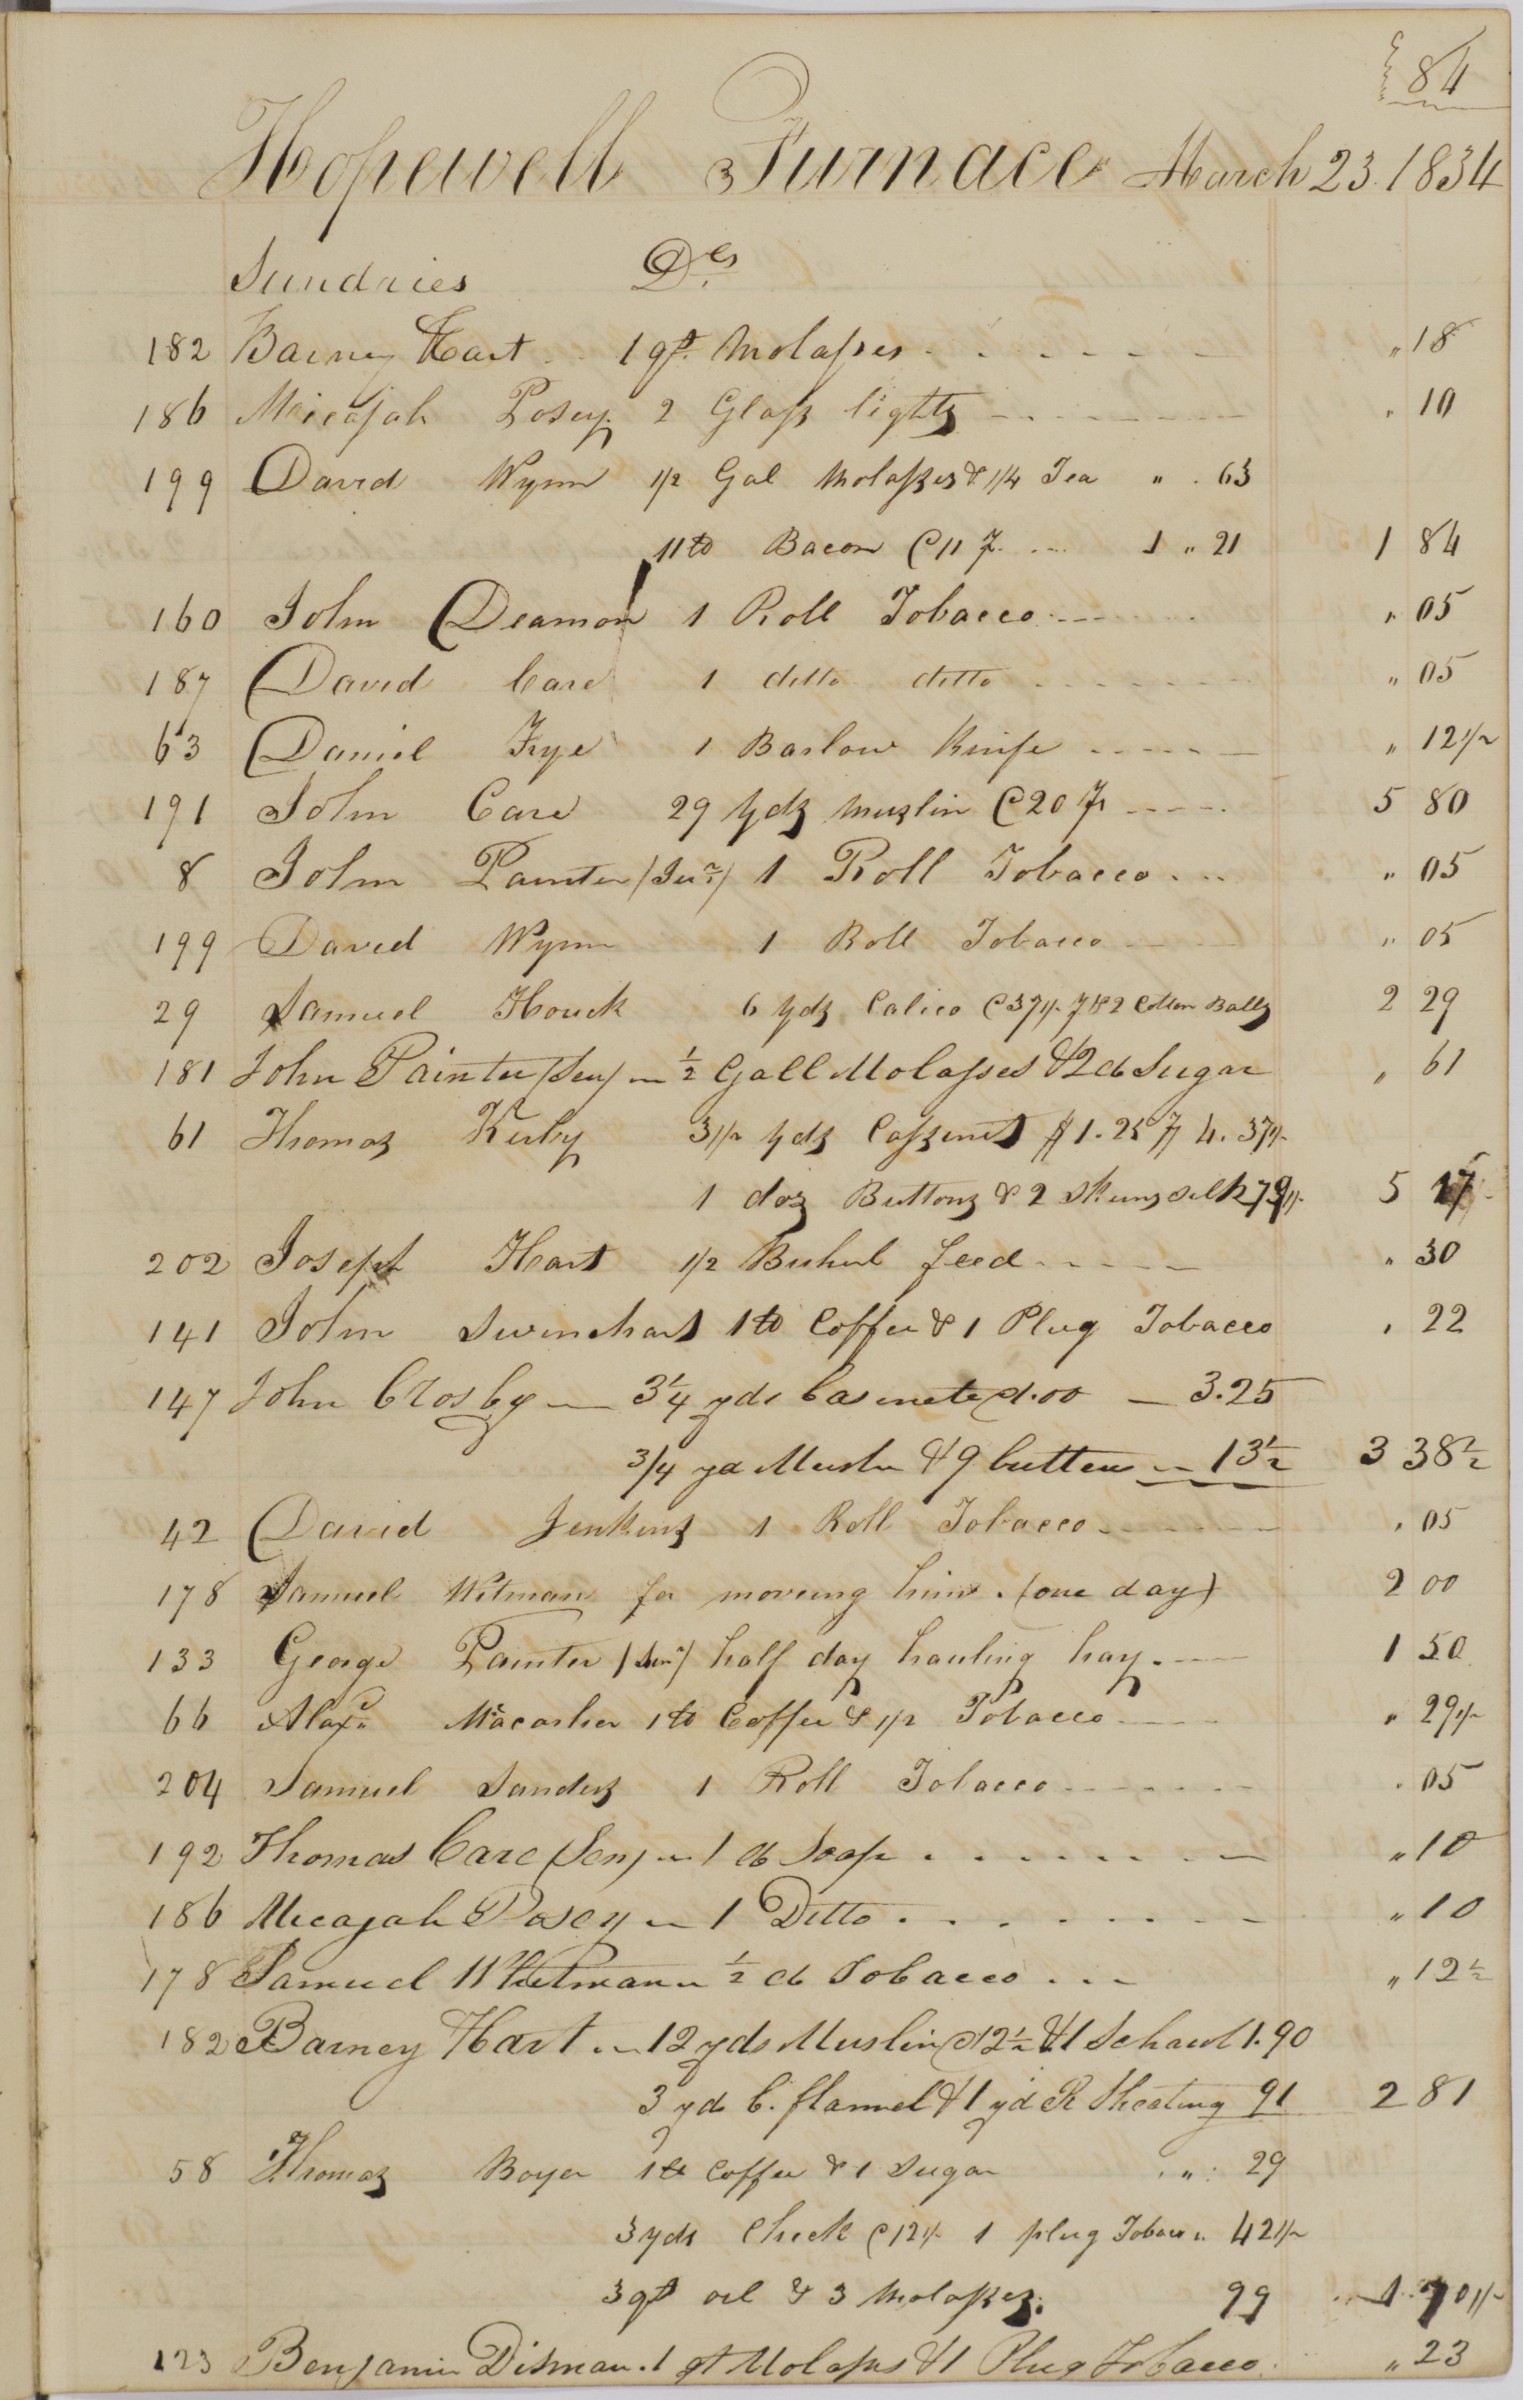 84
Hopewell Furnace March 23. 1834
Sundries Drs
182 Barney Hart 1 qt. Molasses " 18
186 Micajah Posey 2 Glass lights " 10
199 David Wynn 1/2 Gal Molasses & 1/4 Tea " . 63
11 lb Bacon @ 11 1 " 21 1 84
160 John Deamon 1 Roll Tobacco " 05
187 David Care 1 ditto ditto " 05
63 Daniel Frye 1 Barlow Knife " 12 1/2
191 John Care 29 Yds Muslin @ 20 5 80
8 John Painter (Junr) 1 Roll Tobacco " 05
199 David Wynn 1 Roll Tobacco " 05
29 Samuel Houck 6 Yds Calico @ 37 1/2 & 2 Cotton Balls 2 29
181 John Painter (Sen) 1/2 Gall Molasses & 2 lb Sugar " 61
61 Thomas Kirby 3 1/2 Yds Cassinett $1.25 4.37 1/2
1 doz Buttons & 2 Skeins Silk 79 1/2 5 17
202 Joseph Hart 1/2 Bushel feed " 30
141 John Swinehart 1 lb Coffee & 1 Plug Tobacco " 22
147 John Crosby 3 1/4 yds Casinete @ 1.00 3.25
3/4 yd Muslin & 9 buttons 13 1/2 3 38 1/2
42 David Jenkins 1 Roll Tobacco " 05
178 Samuel Witman for moveing him . (one day) 2 00
133 George Painter (Senr) half day hauling hay 1 50
66 Alexr 1 lb Coffee & 1/2 Tobacco " 29 1/2
204 Samuel Sanders 1 Roll Tobacco . 05
192 Thomas Care (Sen) 1 lb Soap " 10
186 Micajah Posey 1 Ditto " 10
178 Samuel Whitman 1/2 lb Tobacco " 12 1/2
182 Barney Hart 12 yds Muslin @ 12 1/2 & 1 Schawl 1.90
3 yds C. flannel & 1 yd R Sheating 91 2 81
58 Thomas Boyer 1 lb Coffee & 1 Sugar " 29
3 yds Check @ 12 1/2 1 plug Tobacco " 42 1/2
3 qts oil & 3 Molasses. 99 1 70 1/2
123 Benjamin Disman . 1 qt Molasses & 1 Plug Tobacco " 23